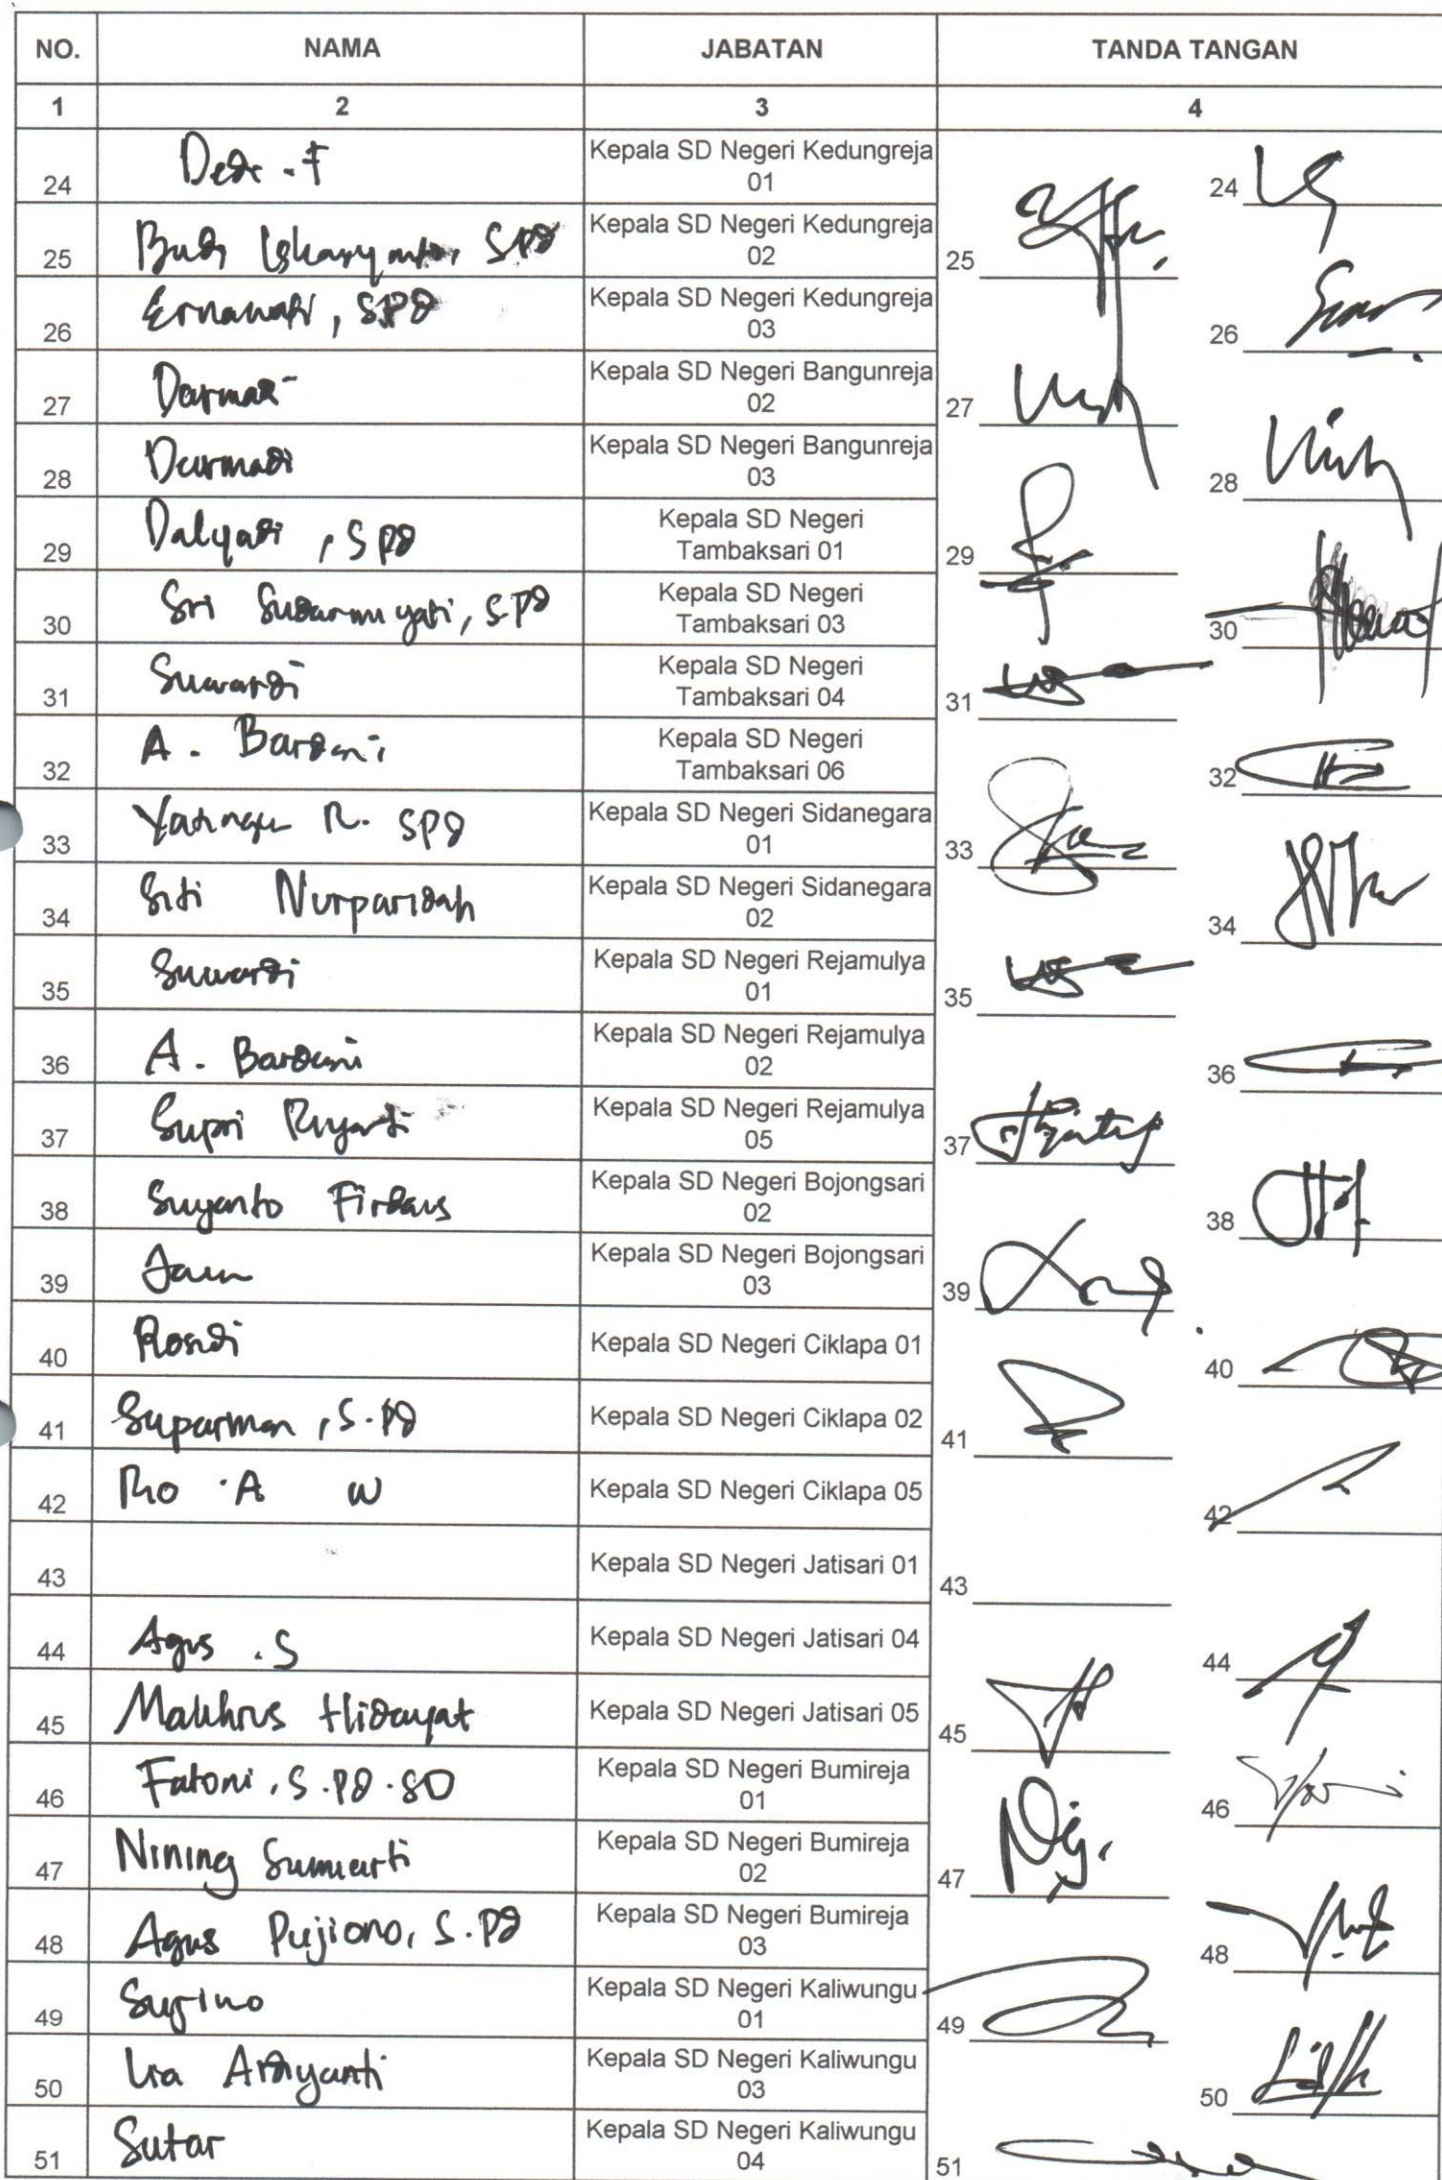 NO. NAMA JABATAN TANDA TANGAN
1 2 3 4
24 Dedi . F Kepala SD Negeri Kedungreja 01 24
25 Budi Iskaryanto, SPd Kepala SD Negeri Kedungreja 02 25
26 Ernawati, SPd Kepala SD Negeri Kedungreja 03 26
27 Darmadi Kepala SD Negeri Bangunreja 02 27
28 Darmadi Kepala SD Negeri Bangunreja 03 28
29 Dalyadi, SPd Kepala SD Negeri Tambaksari 01 29
30 Sri Sudarmiyati, S.Pd Kepala SD Negeri Tambaksari 03 30
31 Suwardi Kepala SD Negeri Tambaksari 04 31
32 A. Bardani Kepala SD Negeri Tambaksari 06 32
33 R. SPd Kepala SD Negeri Sidanegara 01 33
34 Siti Nurparidah Kepala SD Negeri Sidanegara 02 34
35 Suwardi Kepala SD Negeri Rejamulya 01 35
36 A. Bardani Kepala SD Negeri Rejamulya 02 36
37 Supri Riyanti Kepala SD Negeri Rejamulya 05 37
38 Suyanto Firdaus Kepala SD Negeri Bojongsari 02 38
39 Kepala SD Negeri Bojongsari 03 39
40 Rosidi Kepala SD Negeri Ciklapa 01 40
41 Suparman, S.Pd Kepala SD Negeri Ciklapa 02 41
42 Rio . A W Kepala SD Negeri Ciklapa 05 42
43 Kepala SD Negeri Jatisari 01 43
44 Agus . S Kepala SD Negeri Jatisari 04 44
45 Makhrus Hidayat Kepala SD Negeri Jatisari 05 45
46 Fatoni, S.Pd.SD Kepala SD Negeri Bumireja 01 46
47 Nining Sumiarti Kepala SD Negeri Bumireja 02 47
48 Agus Pujiono, S.Pd Kepala SD Negeri Bumireja 03 48
49 Kepala SD Negeri Kaliwungu 01 49
50 Lia Ardiyanti Kepala SD Negeri Kaliwungu 03 50
51 Sutar Kepala SD Negeri Kaliwungu 04 51